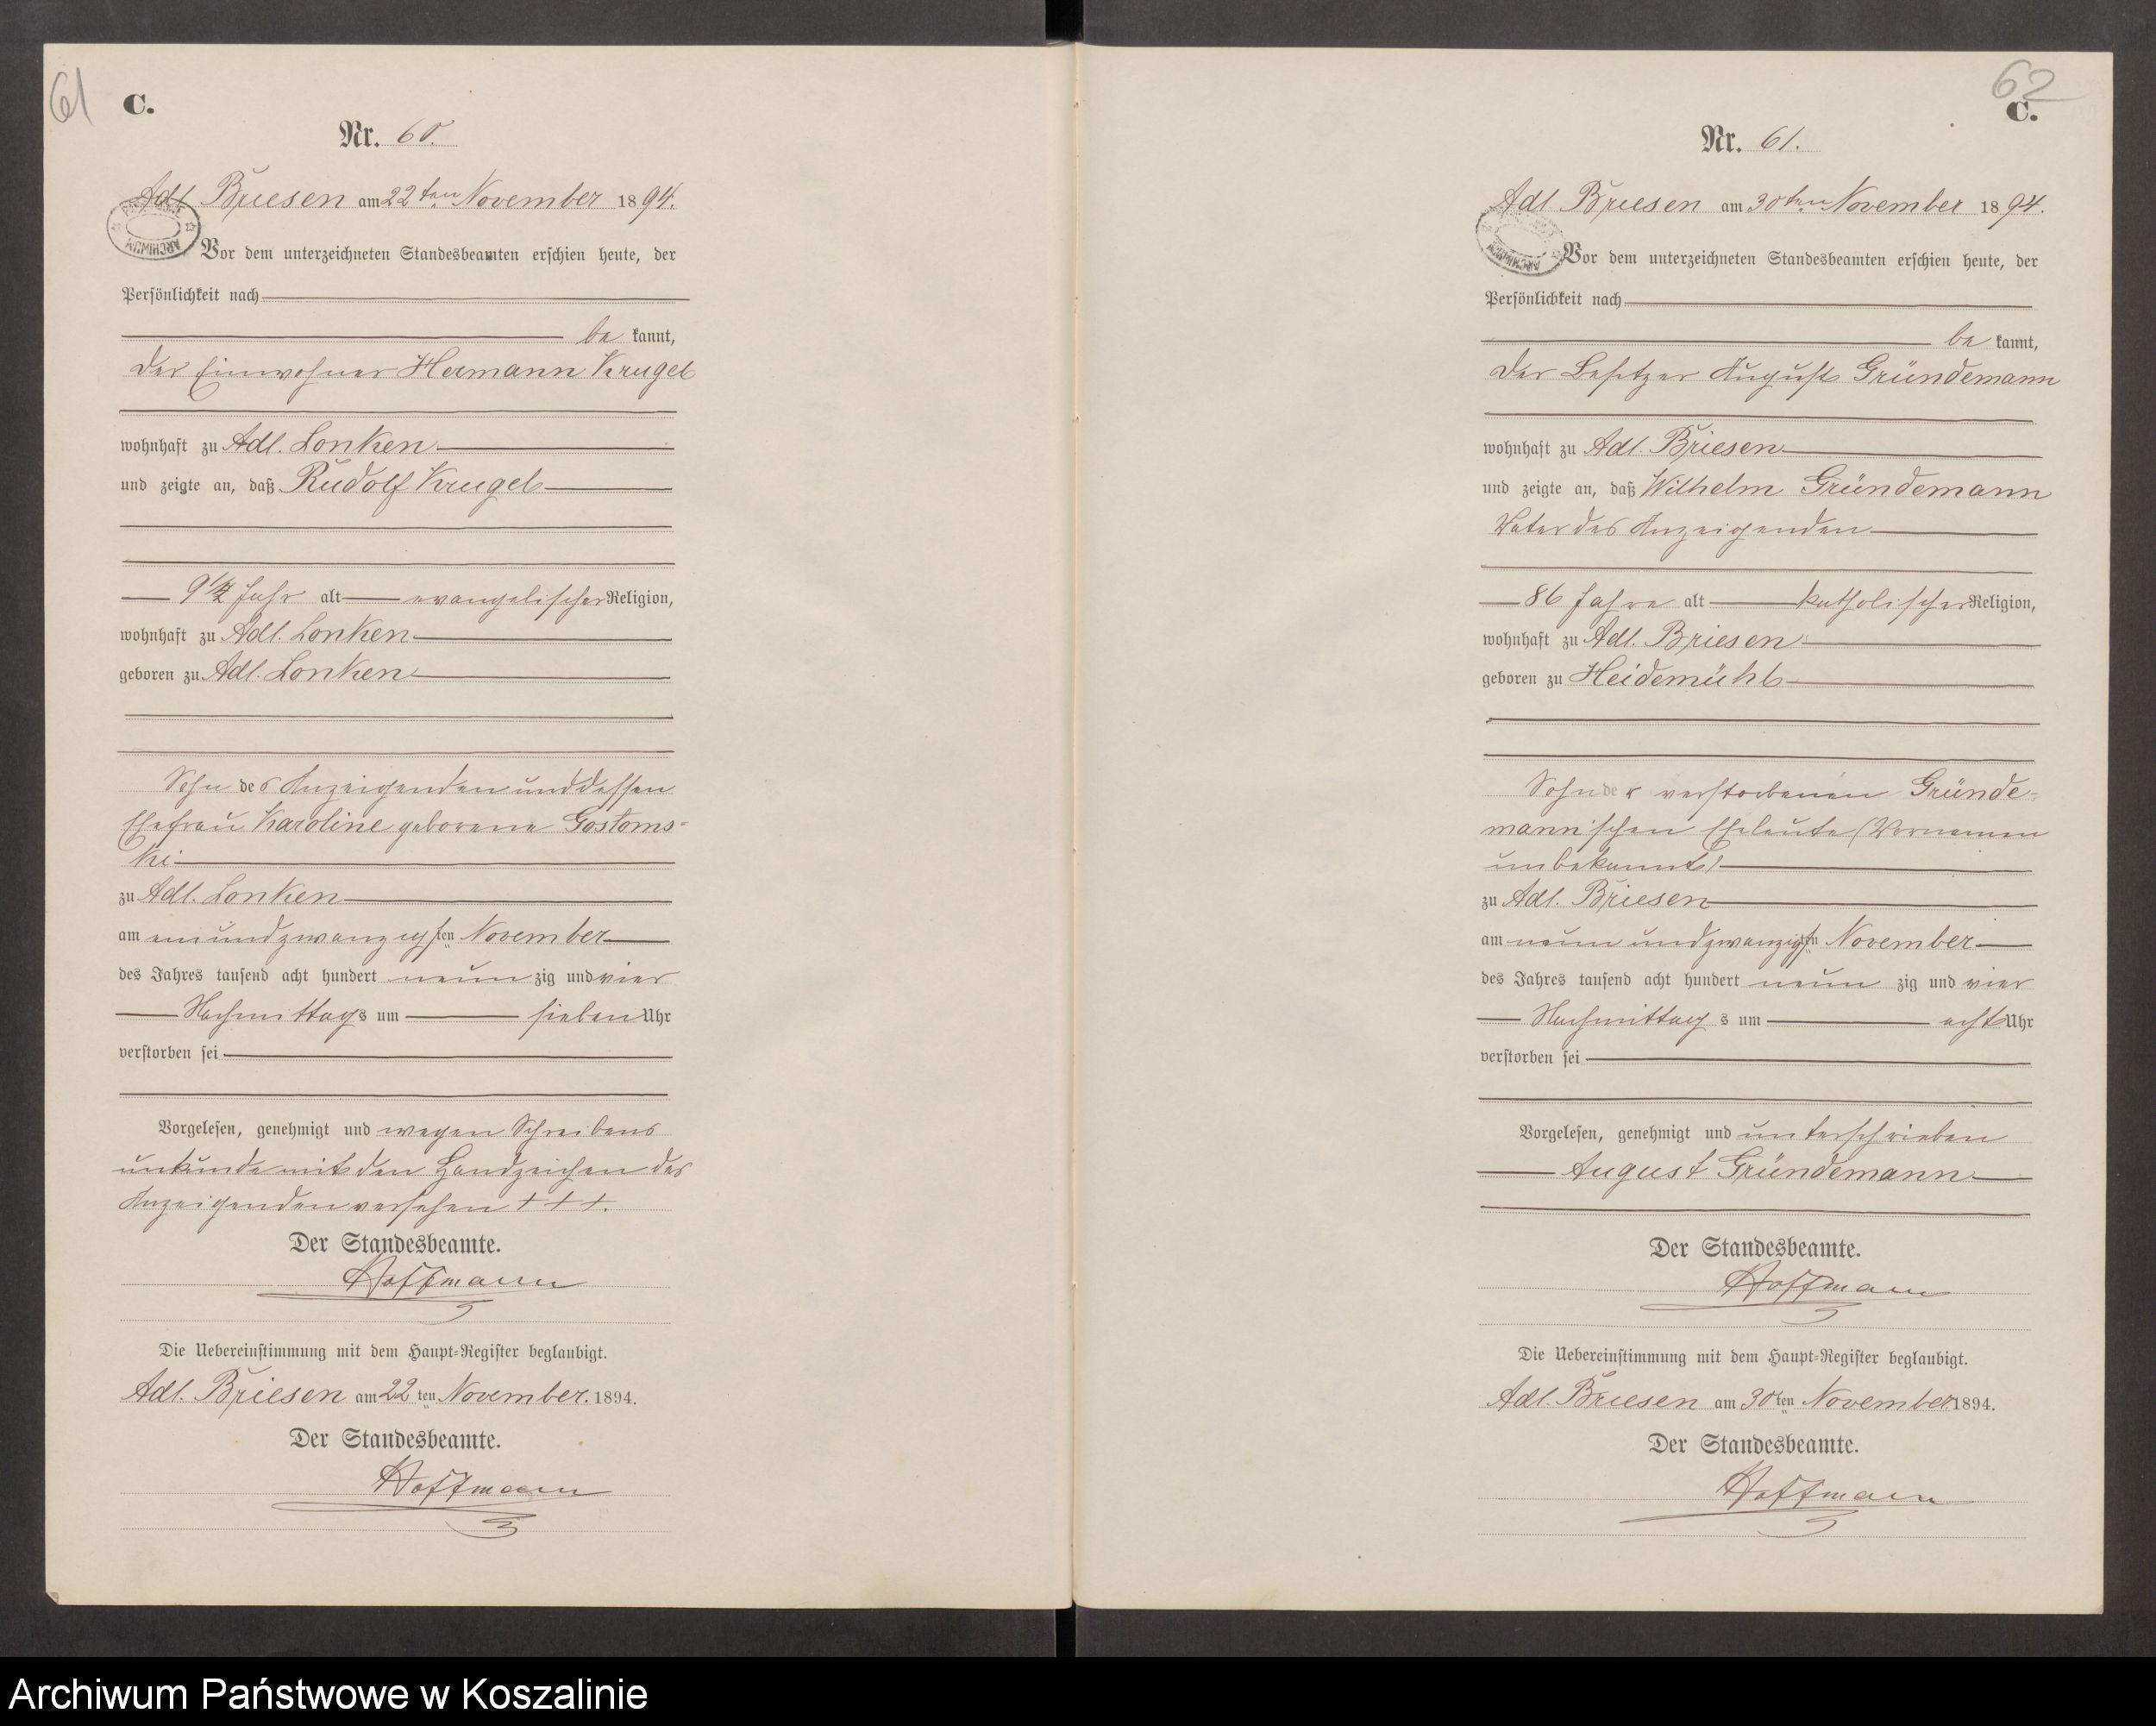 61
C.
Nr. 60.
Adl. Briesen am 22ten November 1894.
ARCHIWUM
Vor dem unterzeichneten Standesbeamten erschien heute, der
Persönlichkeit nach
be kannt,
der Einwohner Hermann Krugel
wohnhaft zu Adl. Lonken
und zeigte an, daß Rudolf Krugel
9 1/2 Jahr alt evangelischer Religion,
wohnhaft zu Adl. Lonken
geboren zu Adl. Lonken
Sohn des Anzeigenden und dessen
Ehefrau Karoline geborene Gostoms-
ki
zu Adl. Lonken
am einundzwanzigsten November
des Jahres tausend acht hundert neun zig und vier
Nachmittags um sieben Uhr
verstorben sei
Vorgelesen, genehmigt und wegen Schreibens
unkunde mit den Handzeichen des
Anzeigenden versehen + + +.
Der Standesbeamte.
Hoffmann
Die Uebereinstimmung mit dem Haupt-Register beglaubigt.
Adl. Briesen am 22ten November. 1894.
Der Standesbeamte.
Hoffmann
62
C.
Nr. 61.
Adl Briesen am 30ten November 1894.
ARCHIWUM
Vor dem unterzeichneten Standesbeamten erschien heute, der
Persönlichkeit nach
be kannt,
der Besitzer August Gründemann
wohnhaft zu Adl. Briesen
und zeigte an, daß Wilhelm Gründemann
Vater des Anzeigenden
86 Jahre alt katholischer Religion,
wohnhaft zu Adl. Briesen
geboren zu Heidemühl
Sohn der verstorbenen Gründe-
mann'schen Eheleute (Vornamen
unbekannt)
zu Adl. Briesen
am neun und zwanzigsten November
des Jahres tausend acht hundert neun zig und vier
Nachmittag s um acht Uhr
verstorben sei
Vorgelesen, genehmigt und unterschrieben
August Gründemann
Der Standesbeamte.
Hoffmann
Die Uebereinstimmung mit dem Haupt-Register beglaubigt.
Adl. Briesen am 30ten November 1894.
Der Standesbeamte.
Hoffmann
Archiwum Państwowe w Koszalinie